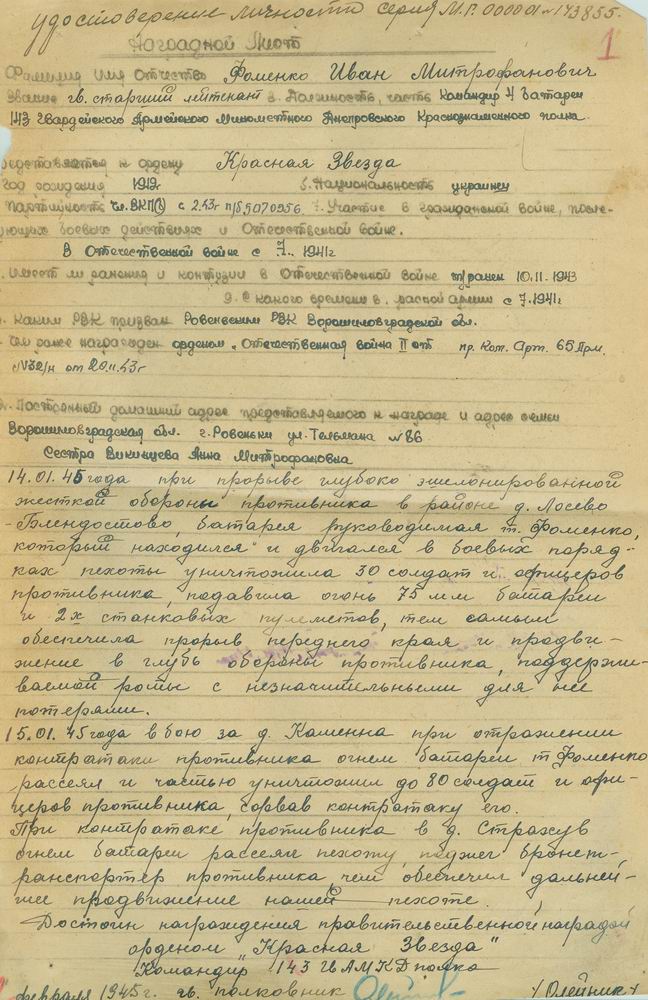 удостоверение личности серия М.Р. 000001 № 173855.
1
Наградной Лист
Фамилия Имя Отчество Фоменко Иван Митрофанович
Звание гв. старший лейтенант 3. Должность, часть Командир 4 батареи
143 Гвардейского Армейского Минометного Днепровского Краснознаменного полка.
едставляется к ордену Красная Звезда
Год рождения 1919г 5. Национальность украинец
Партийность чл. ВКП(б) с 2.43г п/б 5070956 7. Участие в гражданской войне, после-
ующих боевых действиях и Отечественной войне.
В Отечественной войне с 7. 1941г
. Имеет ли ранения и контузии в Отечественной войне т/ранен 10.11.1943
9. С какого времени в красной армии с 7.1941г
. Каким РВК призван Ровеньским РВК Ворошиловградской обл.
. Чем ранее награжден орденом „Отечественная война II ст пр. Ком. Арт. 65 Арм.
№32/н от 20.11.43г
. Постоянный домашний адрес представляемого к награде и адрес семьи
Ворошиловградская обл. г. Ровеньки ул. Тельмана №86
Сестра Анна Митрофановна
14.01.45 года при прорыве глубоко эшелонированной
жесткой обороны противника в районе д. Лосево
- батарея руководимая т. Фоменко,
который находился и двигался в боевых поряд-
ках пехоты уничтожила 30 солдат и офицеров
противника, подавила огонь 75 мм батареи
и 2х станковых пулеметов, тем самым
обеспечила прорыв переднего края и продви-
жение в глубь обороны противника, поддержи-
ваемой роты с незначительными для нее
потерями.
15.01.45 года в бою за д. Каменна при отражении
контратаки противника огнем батареи т Фоменко
рассеял и частью уничтожил до 80 солдат и офи-
церов противника, сорвав контратаку его.
При контратаке противника в д. Страхув
огнем батареи рассеял пехоту, поджег бронет-
ранспортер противника чем обеспечил дальней-
шее продвижение нашей пехоте.
Достоин награждения правительственной наградой
орденом „Красная Звезда"
Командир 143 гв АМКД полка
февраля 1945г. гв. полковник /Олейник/